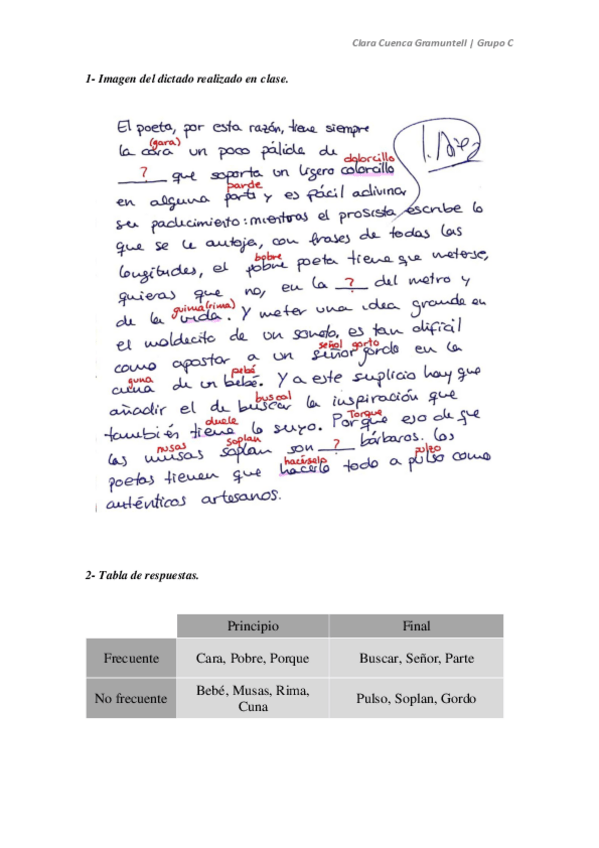 Clara Cuenca Gramuntell | Grupo C
1- Imagen del dictado realizado en clase.
El poeta, por esta razón, tiene siempre
(gara)
la cara un poco pálida de
dolorcillo
? que soporta un ligero colorcillo
parde
en alguna parte y es fácil adivinar
su padecimiento: mientras el prosista escribe lo
que se le antoja, con frases de todas las
bobre
longitudes, el pobre poeta tiene que meterse,
quieras que no, en la ? del metro y
guima (rima)
de la vida. Y meter una idea grande en
el maldecito de un soneto, es tan difícil
señol gorto
como apostar a un señor gordo en la
guna pebé
cuna de un bebé. Y a este suplicio hay que
buscal
añadir el de buscar la inspiración que
duele Torque
también tiene lo suyo. Porque eso de que
nusas soplan
las musas soplan son ? bárbaros. Los
hacérselo pulzo
poetas tienen que hacerlo todo a pulso como
auténticos artesanos.
2- Tabla de respuestas.
Principio Final
Frecuente Cara, Pobre, Porque Buscar, Señor, Parte
No frecuente Bebé, Musas, Rima, Cuna Pulso, Soplan, Gordo